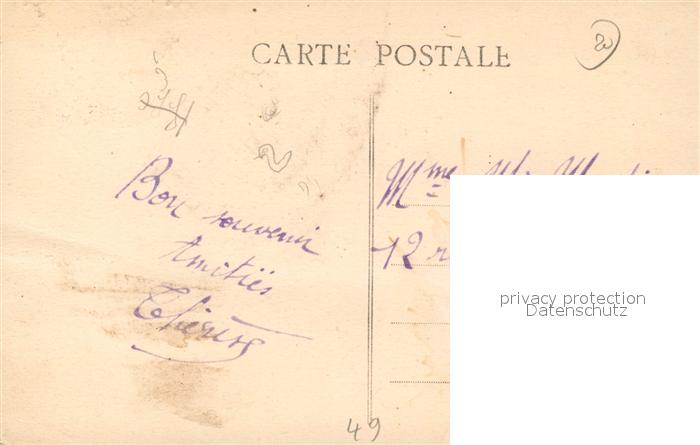 CARTE POSTALE
20
Bon souvenir
Amitiés
Thérèse
Mme
12 r
privacy protection
Datenschutz
49